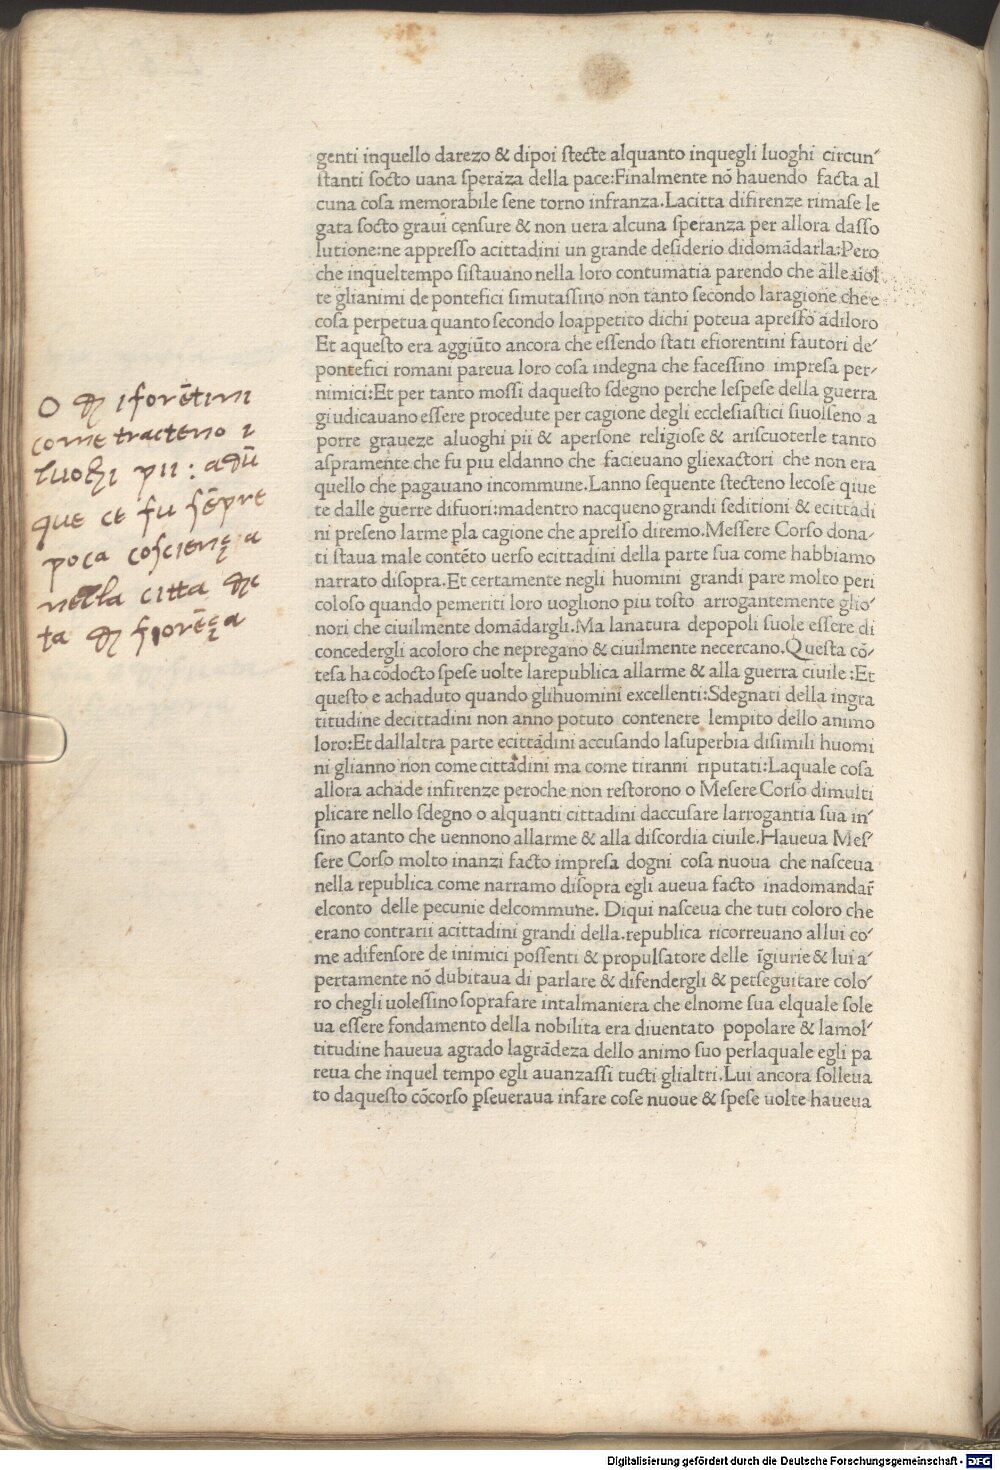 genti inquello darezo & dipoi stecte alquanto inquegli luoghi circun
stanti socto uana sperāza della pace:Finalmente nō hauendo facta al
cuna cosa memorabile sene torno infranza.Lacitta difirenze rimase le
gata socto graui censure & non uera alcuna speranza per allora dasso
lutione:ne appresso acittadini un grande desiderio didomādarla:Pero
che inqueltempo sistauano nella loro contumatia parendo che ālle uol
te glianimi de pontefici simutassino non tanto secondo laragione che e
cosa perpetua quanto secondo loappetito dichi poteua apresso ādiloro
Et aquesto era aggiūto ancora che essendo stati efiorentini fautori de
pontefici romani pareua loro cosa indegna che facessino impresa per
nimici:Et per tanto mossi daquesto sdegno perche lespese della guerra
giudicauano essere procedute per cagione degli ecclesiastici siuolseno a
porre graueze aluoghi pii & apersone religiose & ariscuoterle tanto
aspramente che fu piu eldanno che facieuano gliexactori che non era
quello che pagauano incommune.Lanno sequente stecteno lecose qiue
te dalle guerre difuori:madentro nacqueno grandi seditioni & ecittadi
ni preseno larme pla cagione che apresso diremo.Messere Corso dona
ti staua male contēto uerso ecittadini della parte sua come habbiamo
narrato disopra.Et certamente negli huomini grandi pare molto peri
coloso quando pemeriti loro uogliono piu tosto arrogantemente glio
nori che ciuilmente domādargli.Ma lanatura depopoli suole essere di
concedergli acoloro che nepregano & ciuilmente necercano.Questa cō
tesa ha cōdocto spese uolte larepublica allarme & alla guerra ciuile :Et
questo e achaduto quando glihuomini excellenti:Sdegnati della ingra
titudine decittadini non anno potuto contenere lempito dello animo
loro:Et dallaltra parte ecittadini accusando lasuperbia disimili huomi
ni glianno non come cittadini ma come tiranni riputati:Laquale cosa
allora achade infirenze peroche non restorono o Mesere Corso dimulti
plicare nello sdegno o alquanti cittadini daccusare larrogantia sua in
sino atanto che uennono allarme & alla discordia ciuile.Haueua Mes
sere Corso molto inanzi facto impresa dogni cosa nuoua che nasceua
nella republica come narramo disopra egli aueua facto inadomandar̄
elconto delle pecunie delcommune. Diqui nasceua che tuti coloro che
erano contrarii acittadini grandi della.republica ricorreuano allui co
me adifensore de inimici possenti & propulsatore delle īgiurie & lui a
pertamente nō dubitaua di parlare & difendergli & perseguitare colo
ro chegli uolessino soprafare intalmaniera che elnome sua elquale sole
ua essere fondamento della nobilita era diuentato popolare & lamol
titudine haueua agrado lagrādeza dello animo suo perlaquale egli pa
reua che inquel tempo egli auanzassi tucti glialtri.Lui ancora solleua
to daquesto cōcorso ꝑseueraua infare cose nuoue & spese uolte haueua
O iforētini
come tracteno i
luoghi pii : adū
que ce fu sēpre
poca coscienza
nella citta
ta fiorēza
Digitalisierung gefördert durch die Deutsche Forschungsgemeinschaft - DFG